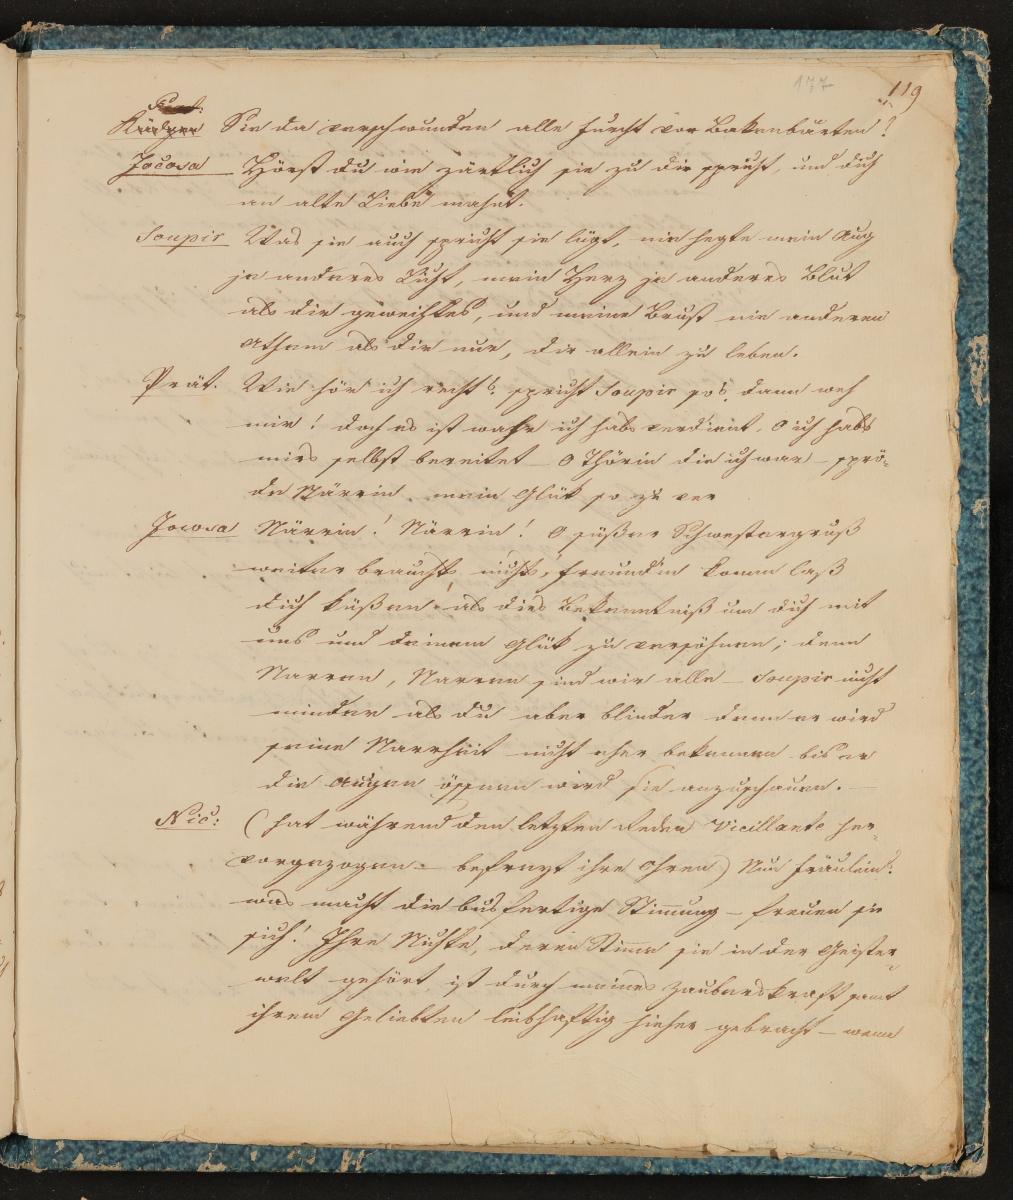 177 119
Sie da verschwunden alle Furcht vor Bakenbärten?
Jocosa Hörst du wie zärtlich sie zu dir spricht, und dich
an alte Liebe mahnt.
Soupir Was sie auch spricht sie lügt, nie hegte mein Aug
je anderes Licht, mein Herz je anderes Blut
als dir geweihtes, und meine Brust nie anderen
Athem als dir nur, dir allein zu leben.
Prät. Wie hör ich recht? spricht Soupir so? dann weh
mir! doch es ist wahr ich habs verdient, O ich habs
mirs selbst bereitet – O Thörin die ich war – sprö-
de Närrin, mein Glük so zu ver
Jocosa Närrin! Närrin! O süßer Schwestergruß
weiter brauchts nichts, Freundin komm laß
dich küßen, als dies Bekenntniß um dich mit
uns und deinem Glük zu versöhnen; denn
Narren, Narren sind wir alle – Soupir nicht
minder als du aber blinder denn er wird
seine Narrheit nicht eher bekennen bis er
die Augen öffnen wird sie anzuschauen. –
Nic: (hat während den letzten Reden Vieillante her-
vorgezogen – befreyt ihre Ohren) Nun Fräulein?
was macht die busfertige Stimmung – freuen sie
sich! Ihre Nichte, deren Stimme sie in der Geister-
welt gehört, ist durch meines Zauberskraft samt
ihrem Geliebten leibhaftig hieher gebracht – wenn